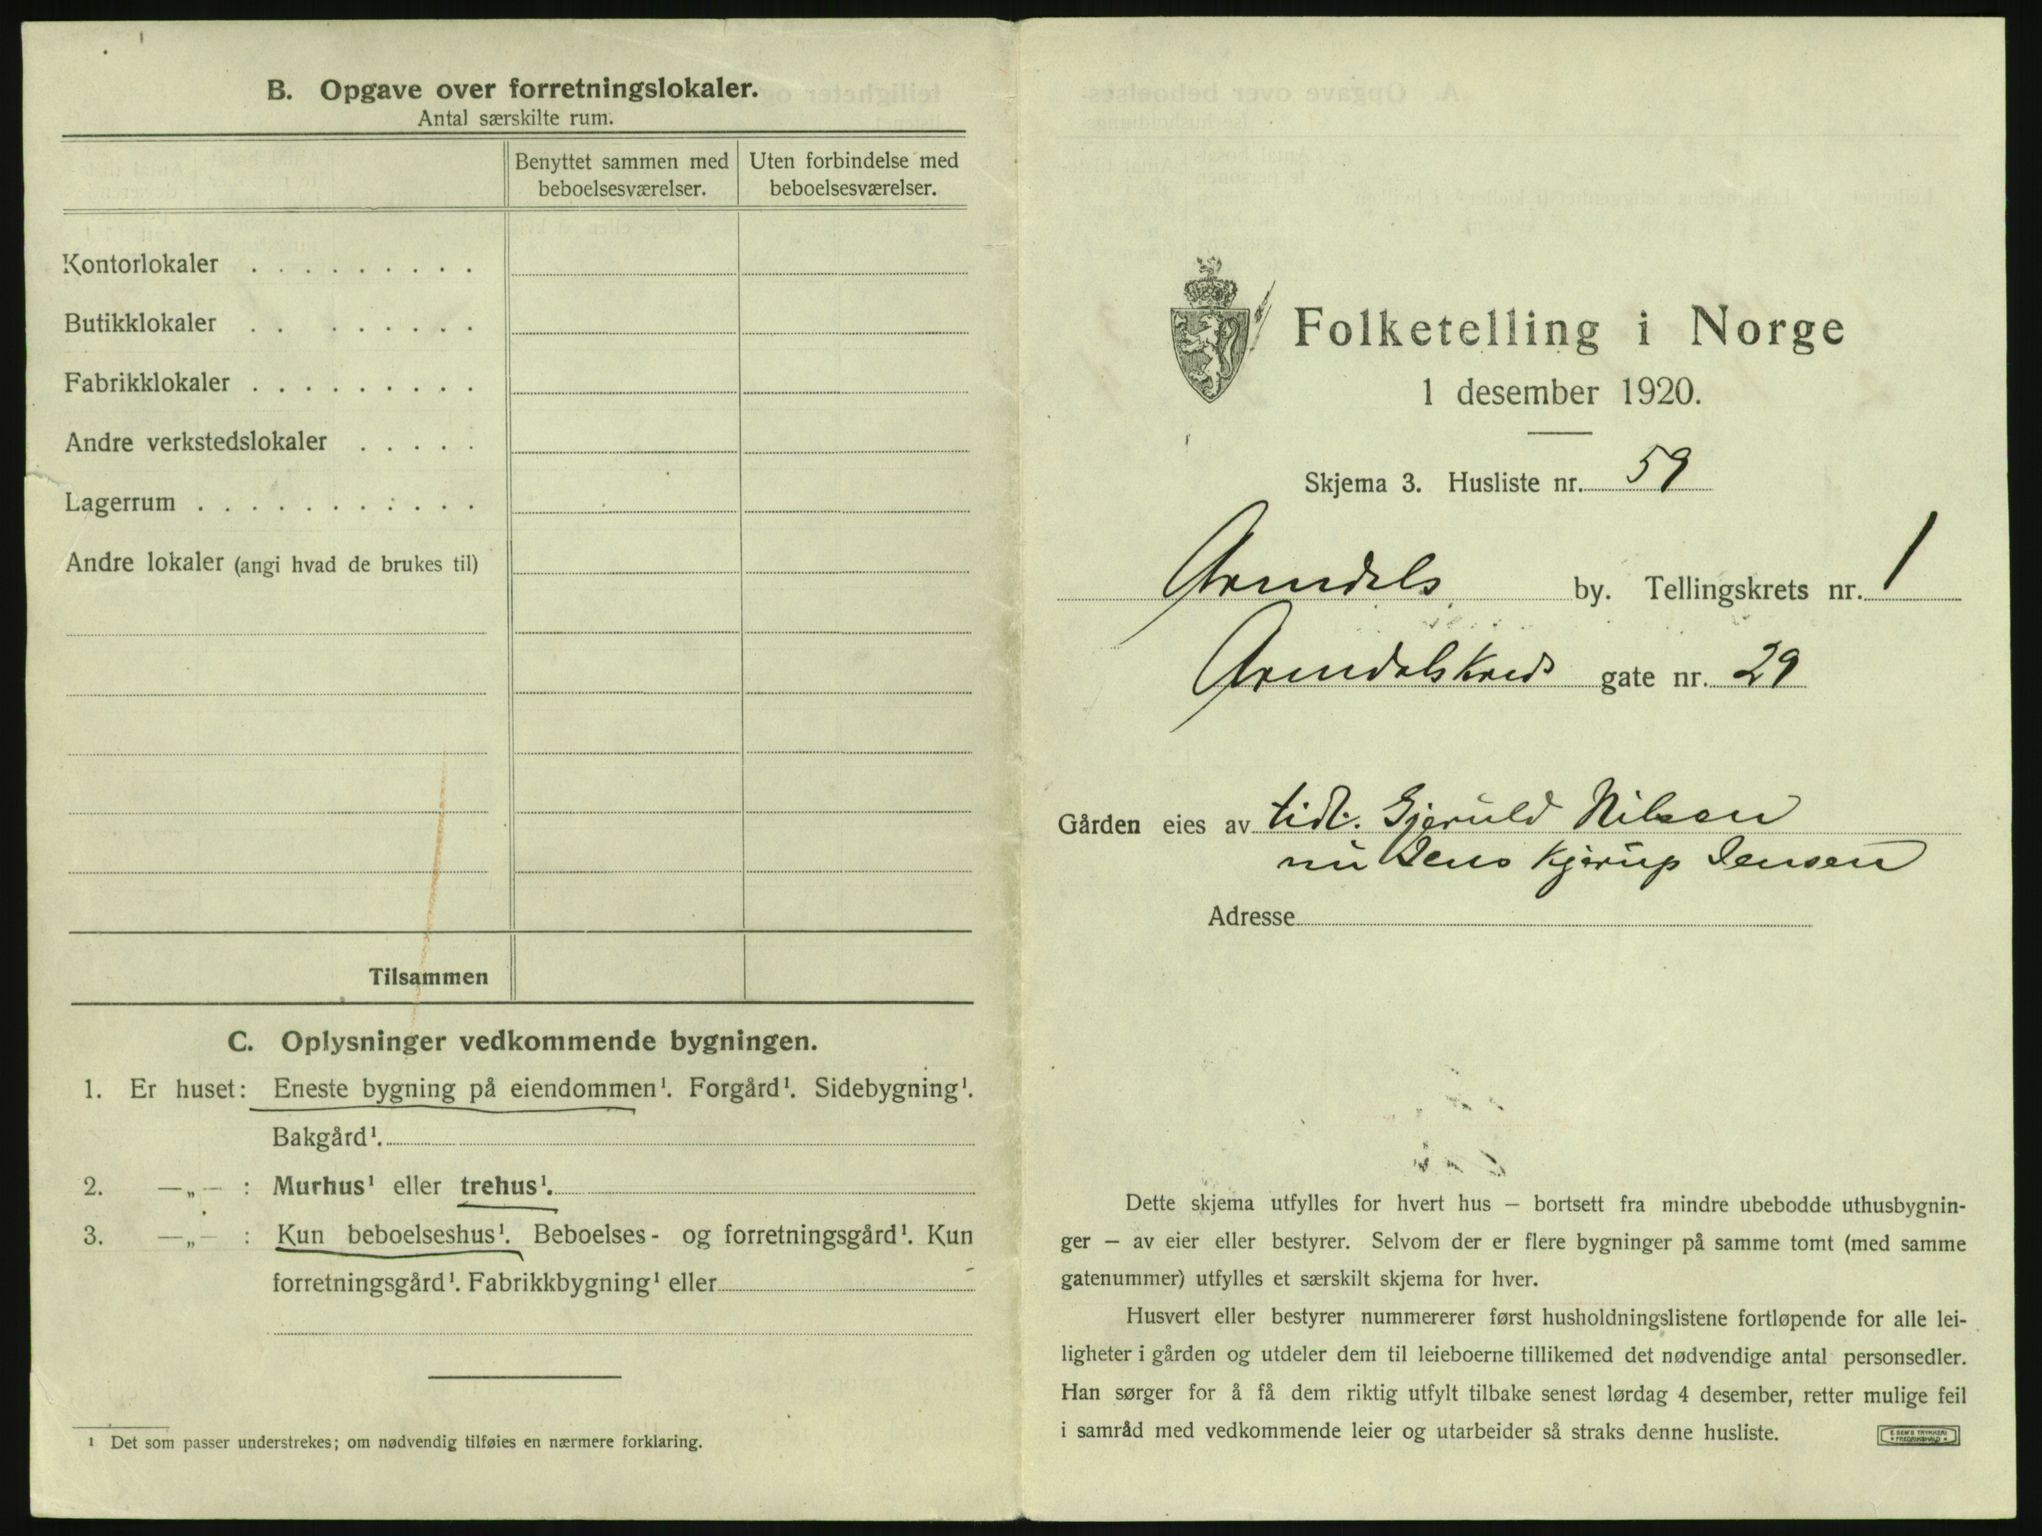 B. Opgave over forretningslokaler.
Antal særskilte rum.
Benyttet sammen med beboelsesværelser.
Uten forbindelse med beboelsesværelser.
Kontorlokaler . . . . . . . . .
Butikklokaler . . . . . . . .
Fabrikklokaler . . . . . . . . .
Andre verkstedslokaler . . . . .
Lagerrum . . . . . . . . . . .
Andre lokaler (angi hvad de brukes til)
Tilsammen
C. Oplysninger vedkommende bygningen.
1. Er huset: Eneste bygning på eiendommen¹. Forgård¹. Sidebygning¹.
Bakgård¹.
2. —„— : Murhus¹ eller trehus¹.
3. —„— : Kun beboelseshus¹. Beboelses- og forretningsgård¹. Kun
forretningsgård¹. Fabrikkbygning¹ eller
¹ Det som passer understrekes; om nødvendig tilføies en nærmere forklaring.
Folketelling i Norge
1 desember 1920.
Skjema 3. Husliste nr. 59
Arendals by. Tellingskrets nr. 1
Arendalskreds gate nr. 29
Gården eies av tidl. Gjeruld Nilsen
nu Jens Kjerup Jensen
Adresse
Dette skjema utfylles for hvert hus — bortsett fra mindre ubebodde uthusbygnin-
ger — av eier eller bestyrer. Selvom der er flere bygninger på samme tomt (med samme
gatenummer) utfylles et særskilt skjema for hver.
Husvert eller bestyrer nummererer først husholdningslistene fortløpende for alle lei-
ligheter i gården og utdeler dem til leieboerne tillikemed det nødvendige antal personsedler.
Han sørger for å få dem riktig utfylt tilbake senest lørdag 4 desember, retter mulige feil
i samråd med vedkommende leier og utarbeider så straks denne husliste.
E. SEM'S TRYKKERI
FREDRIKSHALD